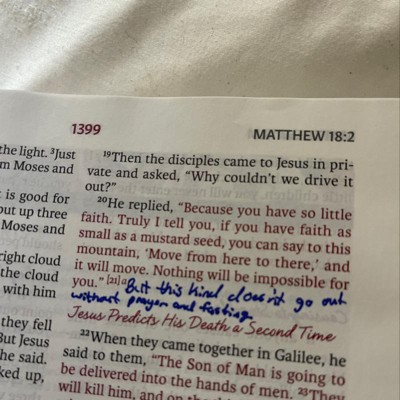 1399
MATTHEW 18:2
the light. ³Just
m Moses and
t is good for
put up three
Moses and
right cloud
the cloud
with him
they fell
But Jesus
he said.
ked up,
¹⁹Then the disciples came to Jesus in pri-
vate and asked, “Why couldn’t we drive it
out?”
²⁰He replied, “Because you have so little
faith. Truly I tell you, if you have faith as
small as a mustard seed, you can say to this
mountain, ‘Move from here to there,’ and
it will move. Nothing will be impossible for
you.” [21]ᵃ But this kind doesn't go out
without prayer and fasting.
Jesus Predicts His Death a Second Time
²²When they came together in Galilee, he
said to them, “The Son of Man is going to
be delivered into the hands of men. ²³They
will kill him, and on the